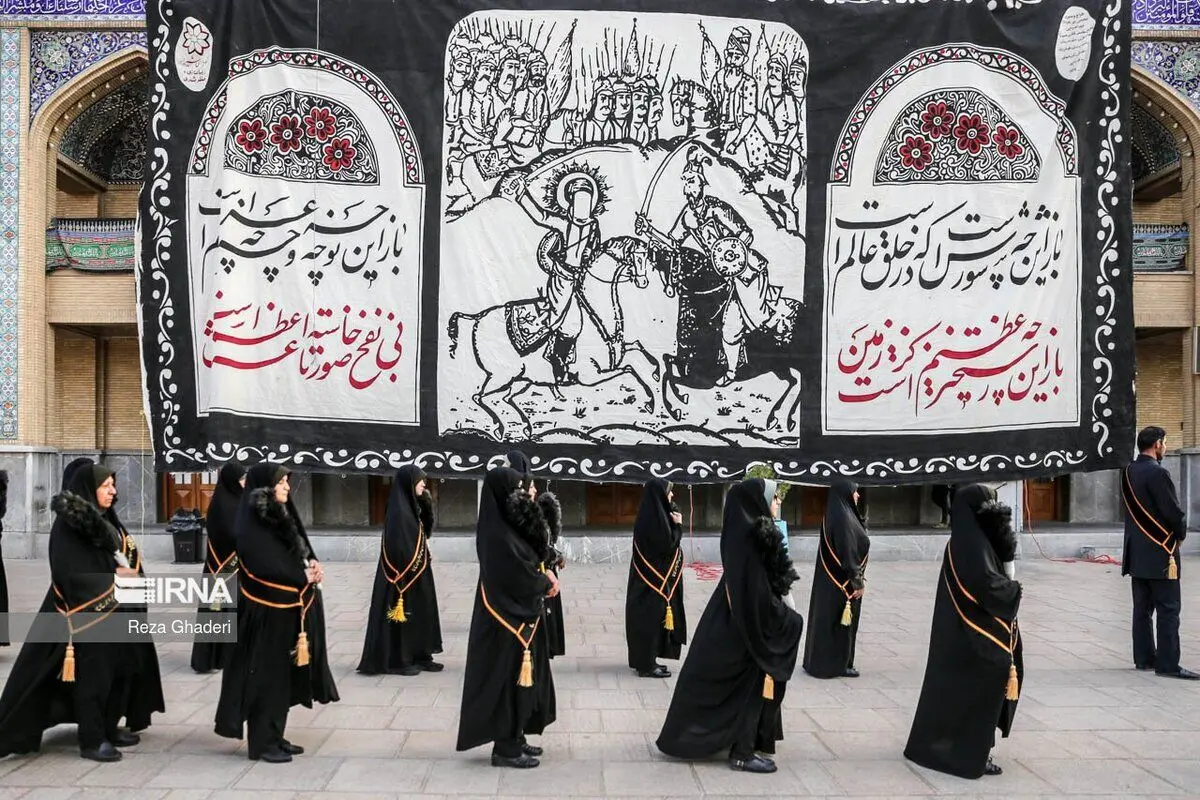 باز این چه شورش است که در خلق عالم است
باز این چه رستخیز عظیم است کز زمین
باز این چه نوحه و چه عزا و چه ماتم است
بی نفخ صور خاسته تا عرش اعظم است
IRNA
Reza Ghaderi